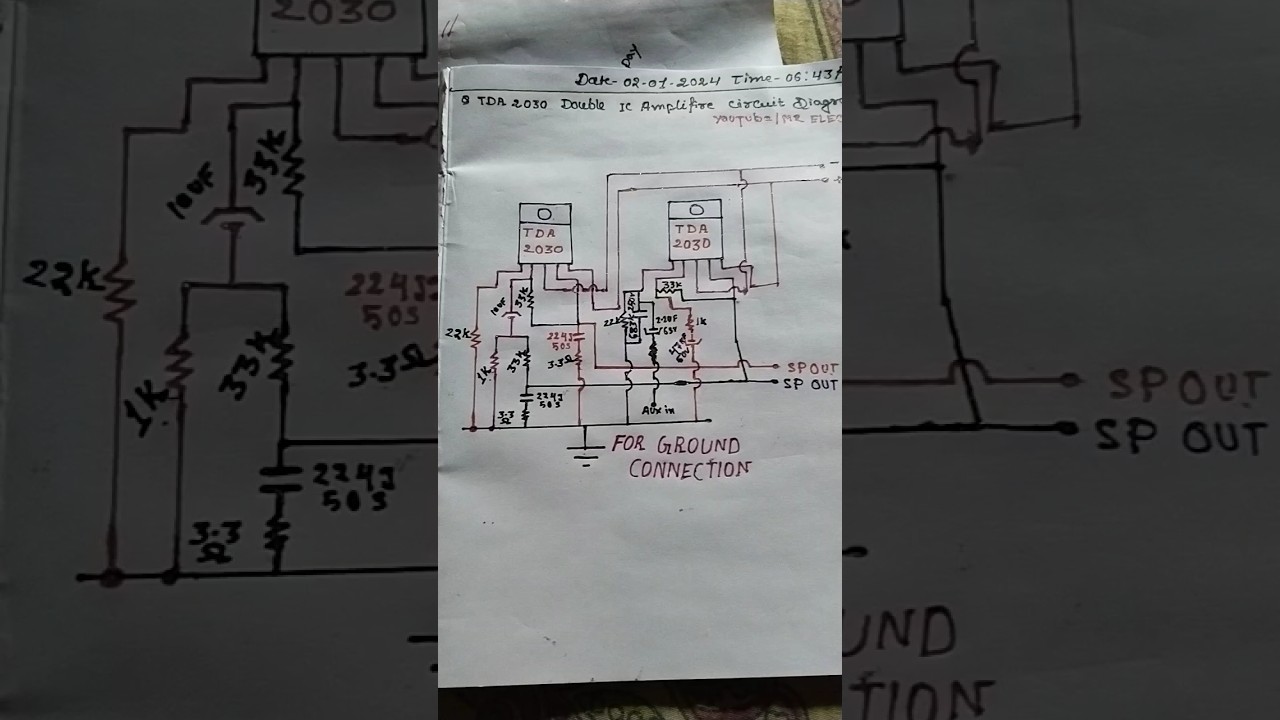 Date- 02-01-2024 Time- 06:43
TDA 2030 Double IC Amplifire circuit Diagr
YouTube/MR ELEC
TDA
2030
TDA
2030
33K
10UF
33K
22K
22K
2.2UF
/63V
1K
224J
50S
3.3Ω
1K
33K
SP OUT
SP OUT
224J
50S
3.3
Ω
Aux in
FOR GROUND
CONNECTION
2030
10UF
33K
22K
224J
50S
3.3Ω
33K
1K
224J
50S
3.3
Ω
SP OUT
SP OUT
UND
TION